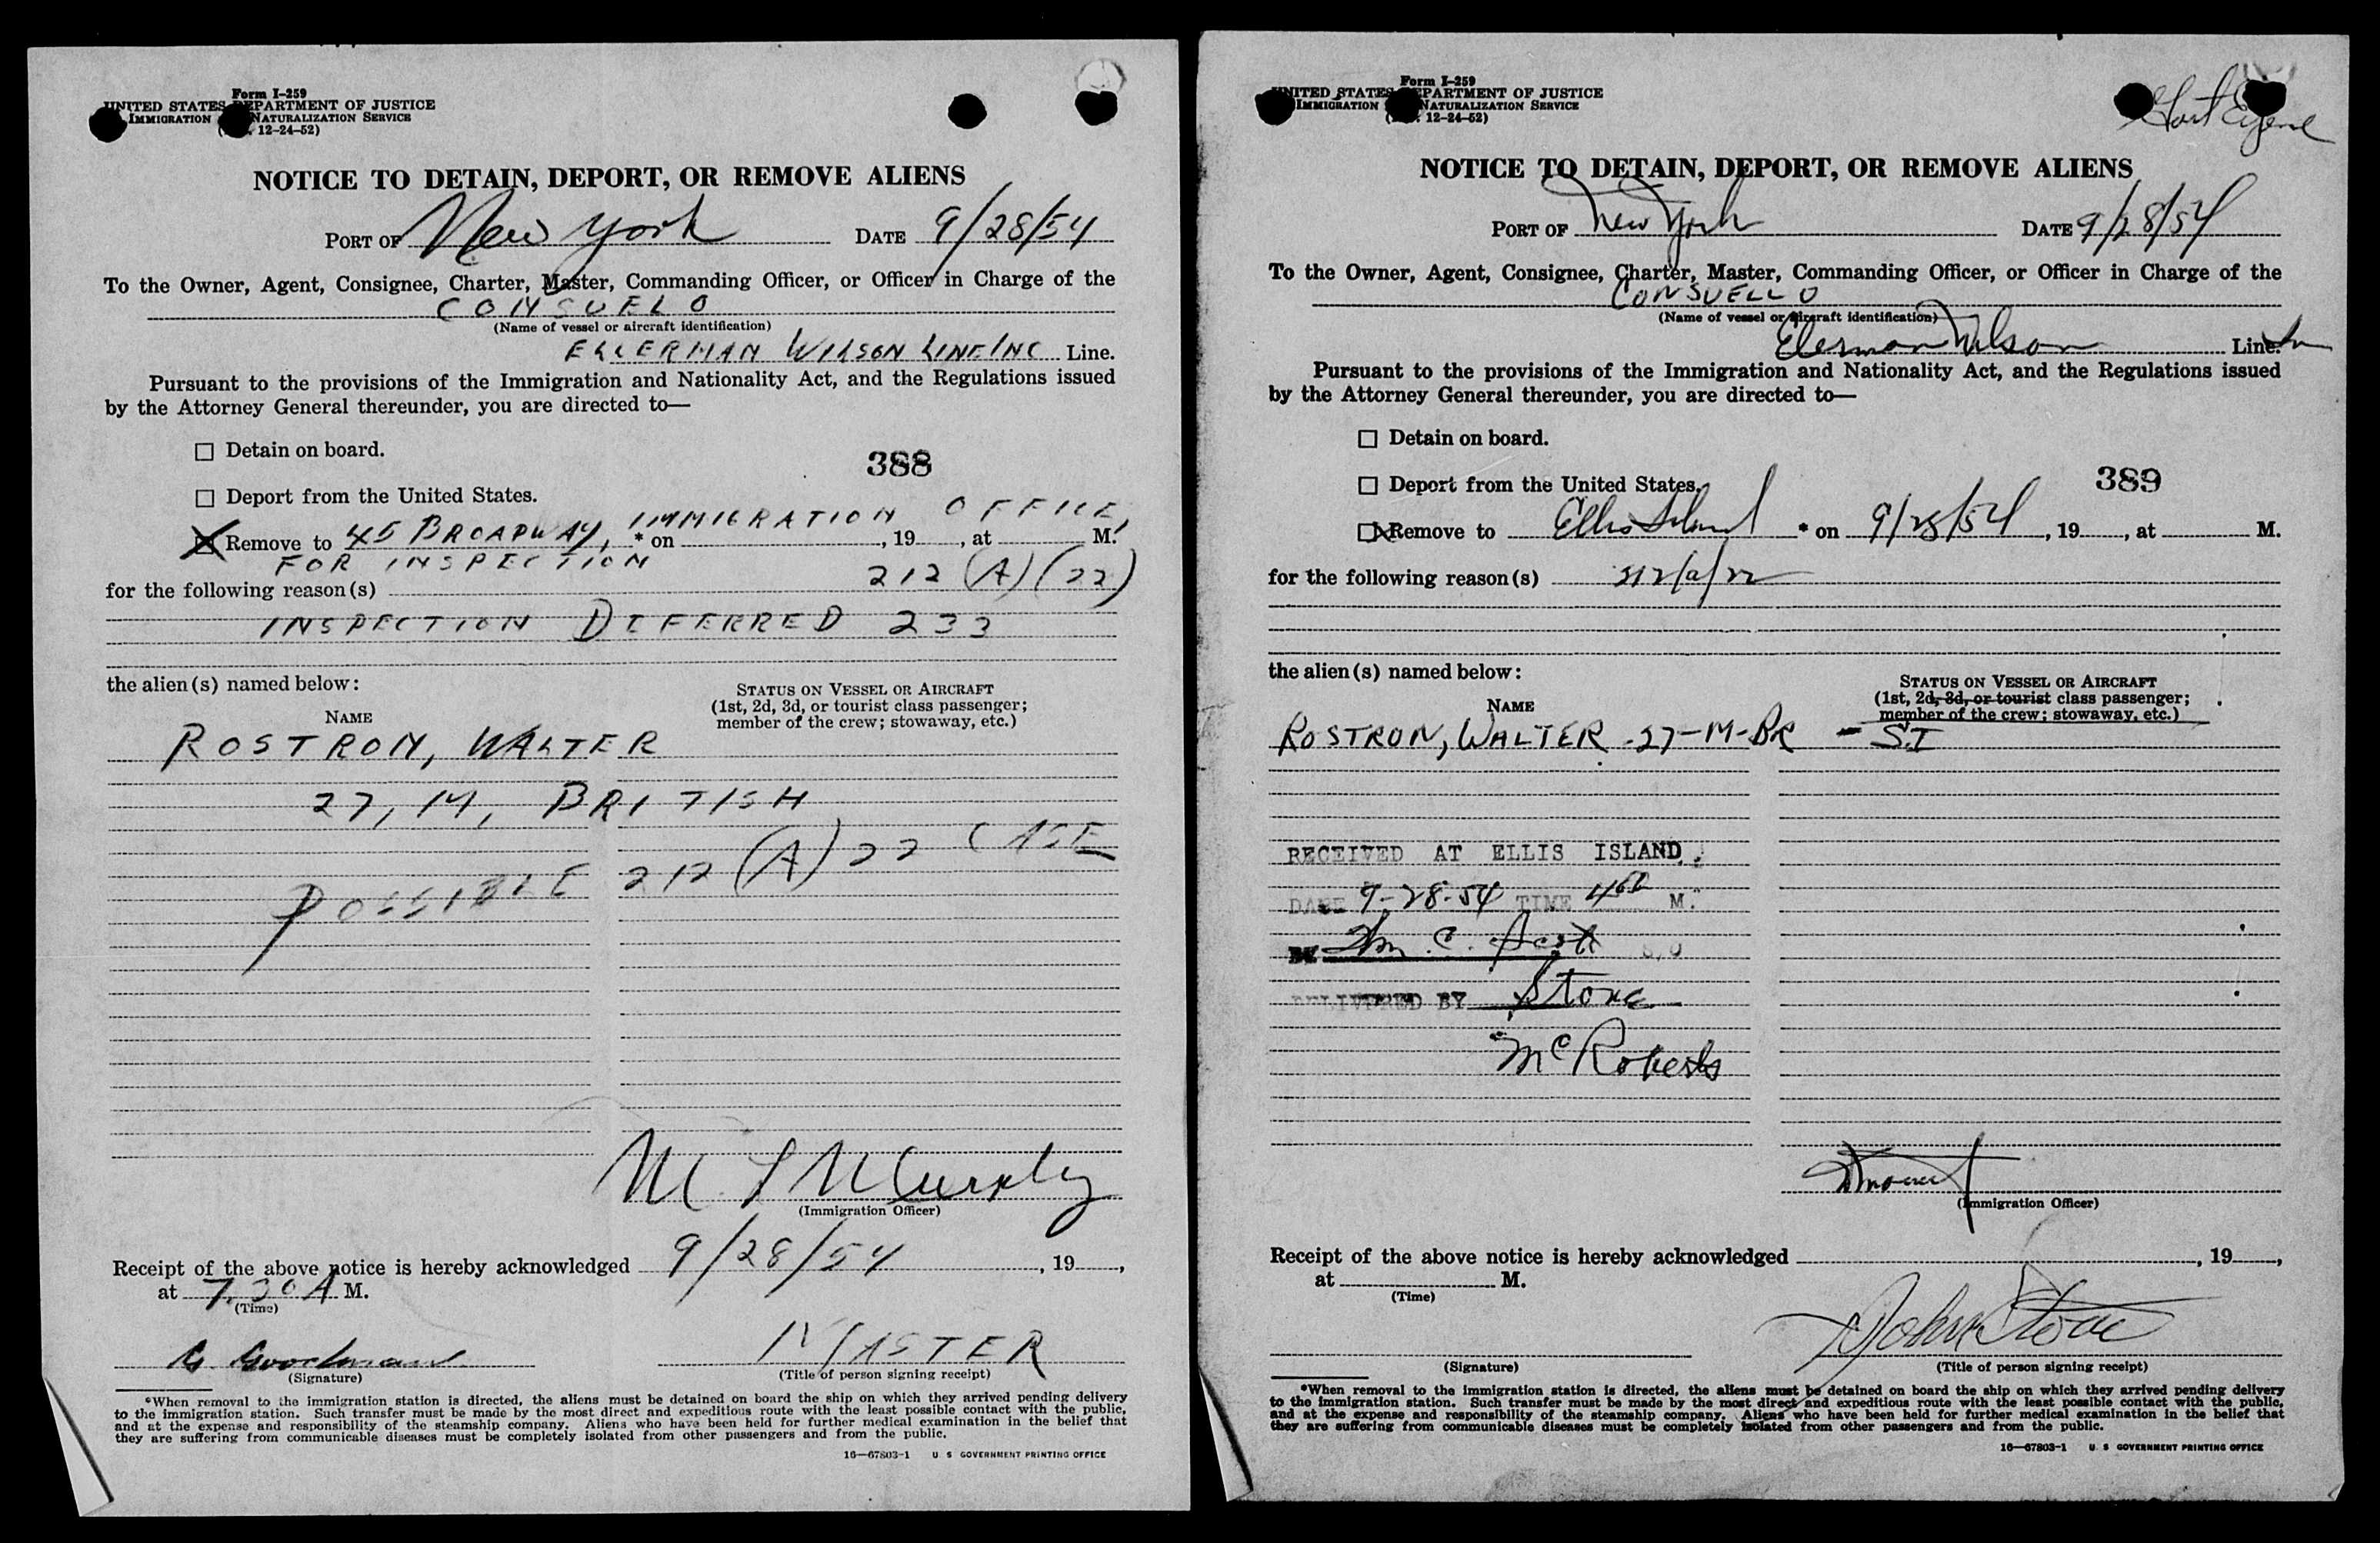 Form I-259
UNITED STATES DEPARTMENT OF JUSTICE
IMMIGRATION NATURALIZATION SERVICE
12-24-52)
NOTICE TO DETAIN, DEPORT, OR REMOVE ALIENS
PORT OF New York DATE 9/28/54
To the Owner, Agent, Consignee, Charter, Master, Commanding Officer, or Officer in Charge of the
CONSUELO
(Name of vessel or aircraft identification)
ELLERMAN WILSON LINE INC Line.
Pursuant to the provisions of the Immigration and Nationality Act, and the Regulations issued
by the Attorney General thereunder, you are directed to—
☐ Detain on board.
388
☐ Deport from the United States.
IMMIGRATION OFFICE,
☒ Remove to 45 BROADWAY, * on , 19 , at M.
FOR INSPECTION
for the following reason(s) 212 (A) (22)
INSPECTION DEFERRED 233
the alien(s) named below:
STATUS ON VESSEL OR AIRCRAFT
(1st, 2d, 3d, or tourist class passenger;
member of the crew; stowaway, etc.)
NAME
ROSTRON, WALTER
27, M, BRITISH
POSSIBLE 212 (A) 22 CASE
M Murphy
(Immigration Officer)
Receipt of the above notice is hereby acknowledged 9/28/54 , 19 ,
at 7.30 A M.
(Time)
G. Goodman MASTER
(Signature) (Title of person signing receipt)
*When removal to the immigration station is directed, the aliens must be detained on board the ship on which they arrived pending delivery
to the immigration station. Such transfer must be made by the most direct and expeditious route with the least possible contact with the public,
and at the expense and responsibility of the steamship company. Aliens who have been held for further medical examination in the belief that
they are suffering from communicable diseases must be completely isolated from other passengers and from the public.
16—67803-1 U S GOVERNMENT PRINTING OFFICE
Form I-259
UNITED STATES DEPARTMENT OF JUSTICE
IMMIGRATION NATURALIZATION SERVICE
12-24-52)
NOTICE TO DETAIN, DEPORT, OR REMOVE ALIENS
PORT OF New York DATE 9/28/54
To the Owner, Agent, Consignee, Charter, Master, Commanding Officer, or Officer in Charge of the
CONSUELLO
(Name of vessel or aircraft identification)
Elerman Wilson Line.
Pursuant to the provisions of the Immigration and Nationality Act, and the Regulations issued
by the Attorney General thereunder, you are directed to—
☐ Detain on board.
389
☐ Deport from the United States.
☒ Remove to Ellis Island * on 9/28/54 , 19 , at M.
for the following reason(s) 212/a/22
the alien(s) named below:
STATUS ON VESSEL OR AIRCRAFT
(1st, 2d, 3d, or tourist class passenger;
member of the crew; stowaway, etc.)
NAME
ROSTRON, WALTER - 27-M-BR - S.I
RECEIVED AT ELLIS ISLAND.
DATE 9-28-54 TIME 4 M.
Wm. C.
DELIVERED BY Stone
McRoberts
(Immigration Officer)
Receipt of the above notice is hereby acknowledged , 19 ,
at M.
(Time)
John Stone
(Signature) (Title of person signing receipt)
*When removal to the immigration station is directed, the aliens must be detained on board the ship on which they arrived pending delivery
to the immigration station. Such transfer must be made by the most direct and expeditious route with the least possible contact with the public,
and at the expense and responsibility of the steamship company. Aliens who have been held for further medical examination in the belief that
they are suffering from communicable diseases must be completely isolated from other passengers and from the public.
16—67803-1 U S GOVERNMENT PRINTING OFFICE